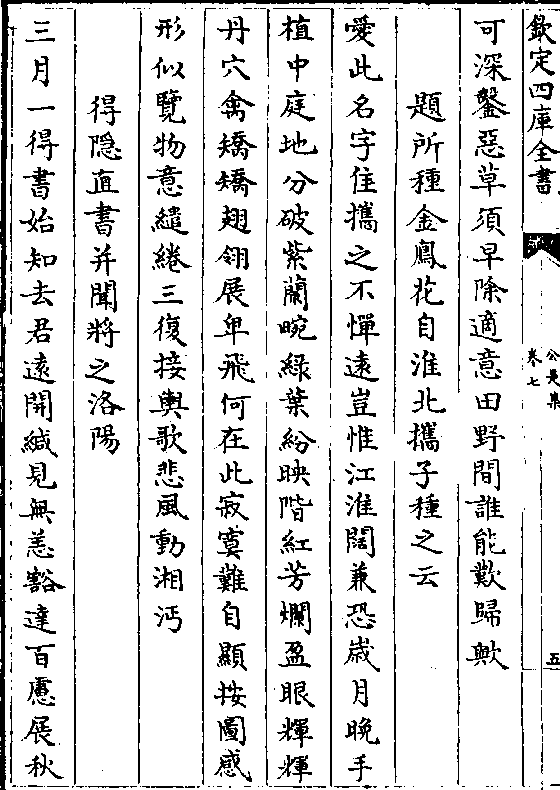 欽定四庫全書
公是集
卷七
五
可深鑿惡草須早除適意田野間誰能歎歸歟
題所種金鳳花自淮北攜子種之云
愛此名字佳攜之不憚遠豈惟江淮闊兼恐歲月晚手
植中庭地分破紫蘭畹綠葉紛映階紅芳爛盈眼輝輝
丹穴禽矯矯翅翎展卑飛何在此寂寞難自顯按圖感
形似覽物意繾綣三復接輿歌悲風動湘沔
得隱直書并聞將之洛陽
三月一得書始知去君遠開緘見無恙豁達百慮展秋